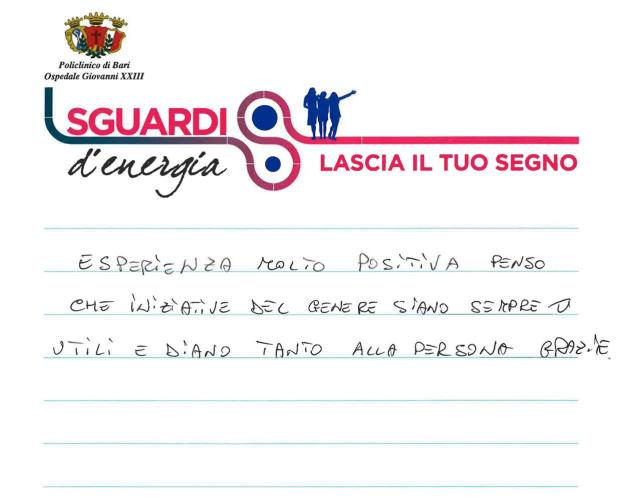 Policlinico di Bari
Ospedale Giovanni XXIII
SGUARDI
d'energia
LASCIA IL TUO SEGNO
ESPERIENZA MOLTO POSITIVA PENSO
CHE INIZIATIVE DEL GENERE SIANO SEMPRE
UTILI E DIANO TANTO ALLA PERSONA GRAZIE